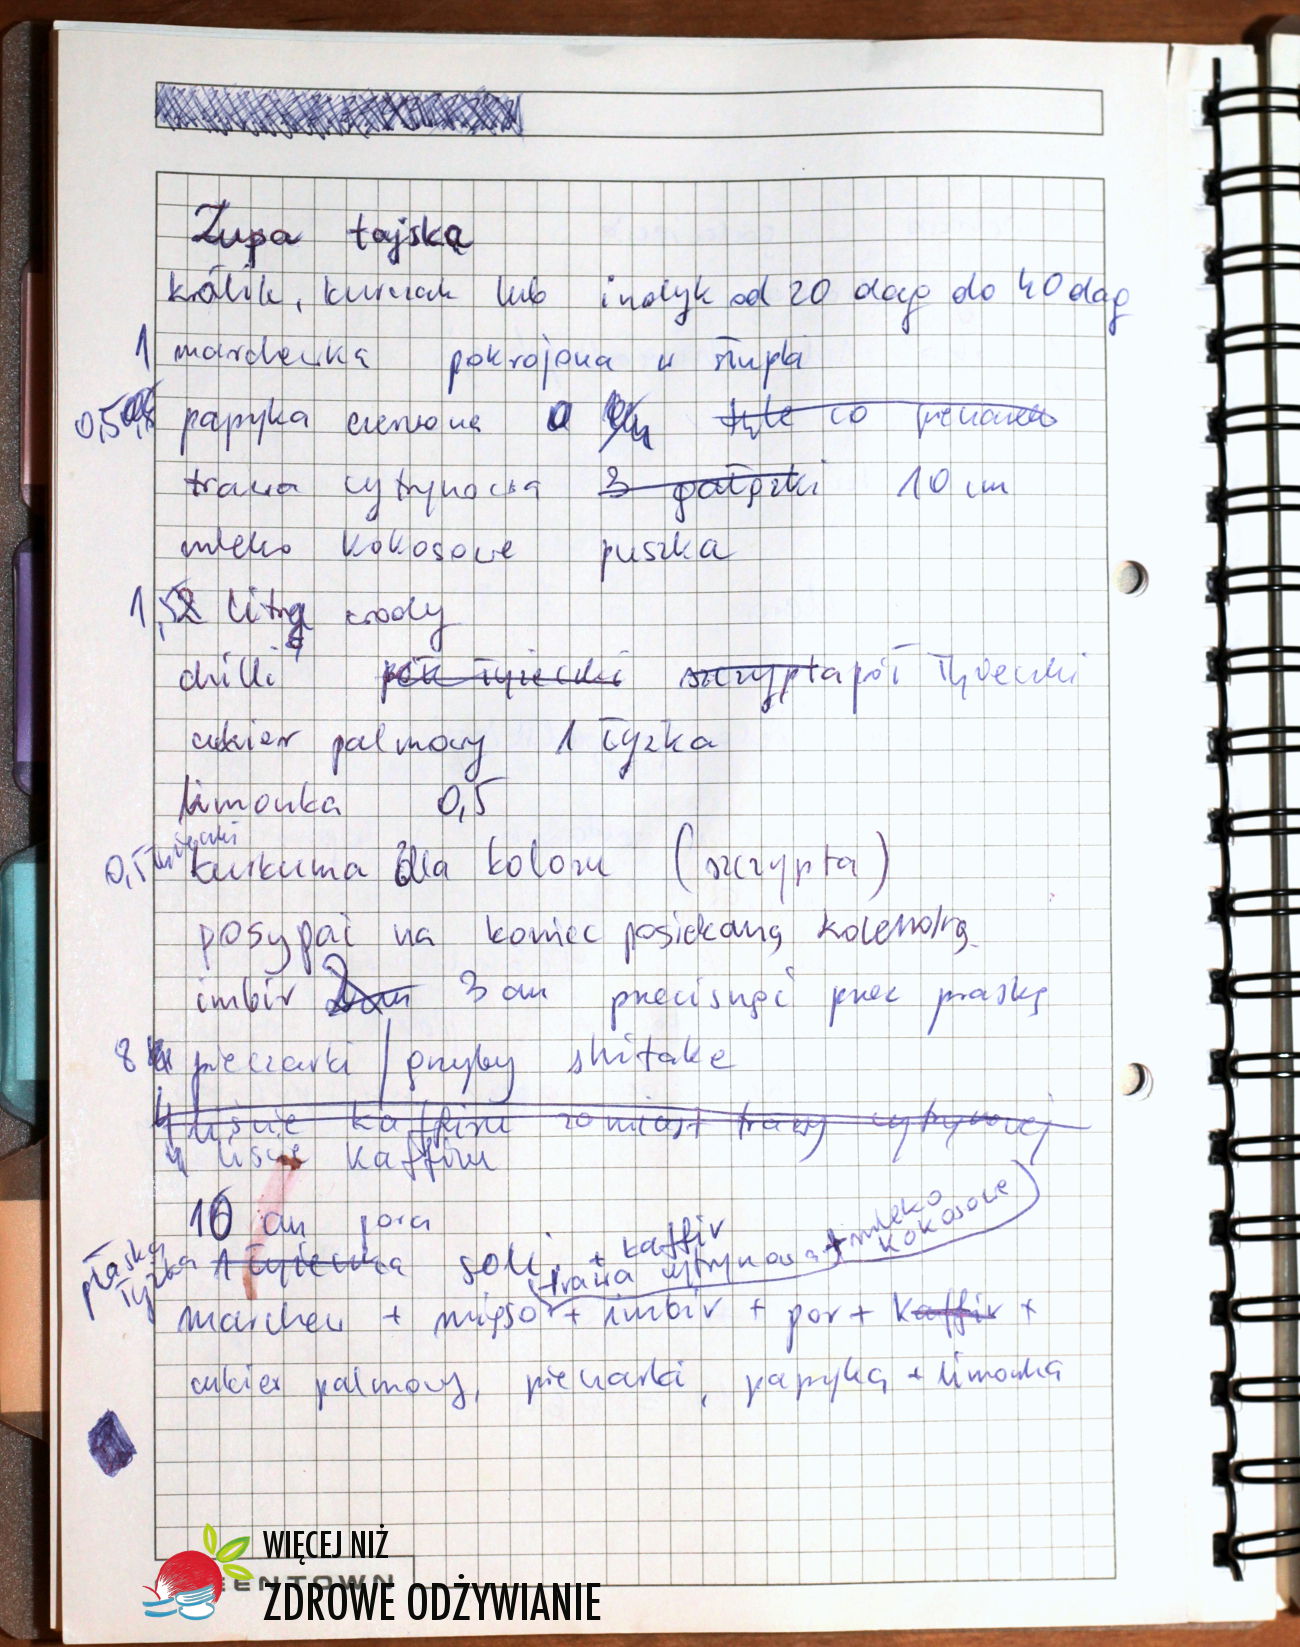 Zupa tajska
królik, kurczak lub indyk od 20 dag do 40 dag
1 marchewka pokrojona w słupki
0,5 papryka czerwona tyle co
trawa cytrynowa 3 gałązki 10 cm
mleko kokosowe puszka
1,5 litra wody
chilli pół łyżeczki szczypta pół łyżeczki
cukier palmowy 1 łyżka
limonka 0,5
0,5 łyżeczki kurkuma dla koloru (szczypta)
posypać na koniec posiekaną kolendrą
imbir 3 cm przecisnąć przez praskę
8 pieczarki / grzyby shitake
4 liście kaffiru zamiast trawy cytrynowej
4 liście kaffiru
10 cm pora
płaska łyżka 1 łyżeczka soli
+ kaffir
trawa cytrynowa + mleko kokosowe
marchew + mięso + imbir + por + kaffir +
cukier palmowy, pieczarki, papryka + limonka
WIĘCEJ NIŻ
ZDROWE ODŻYWIANIE